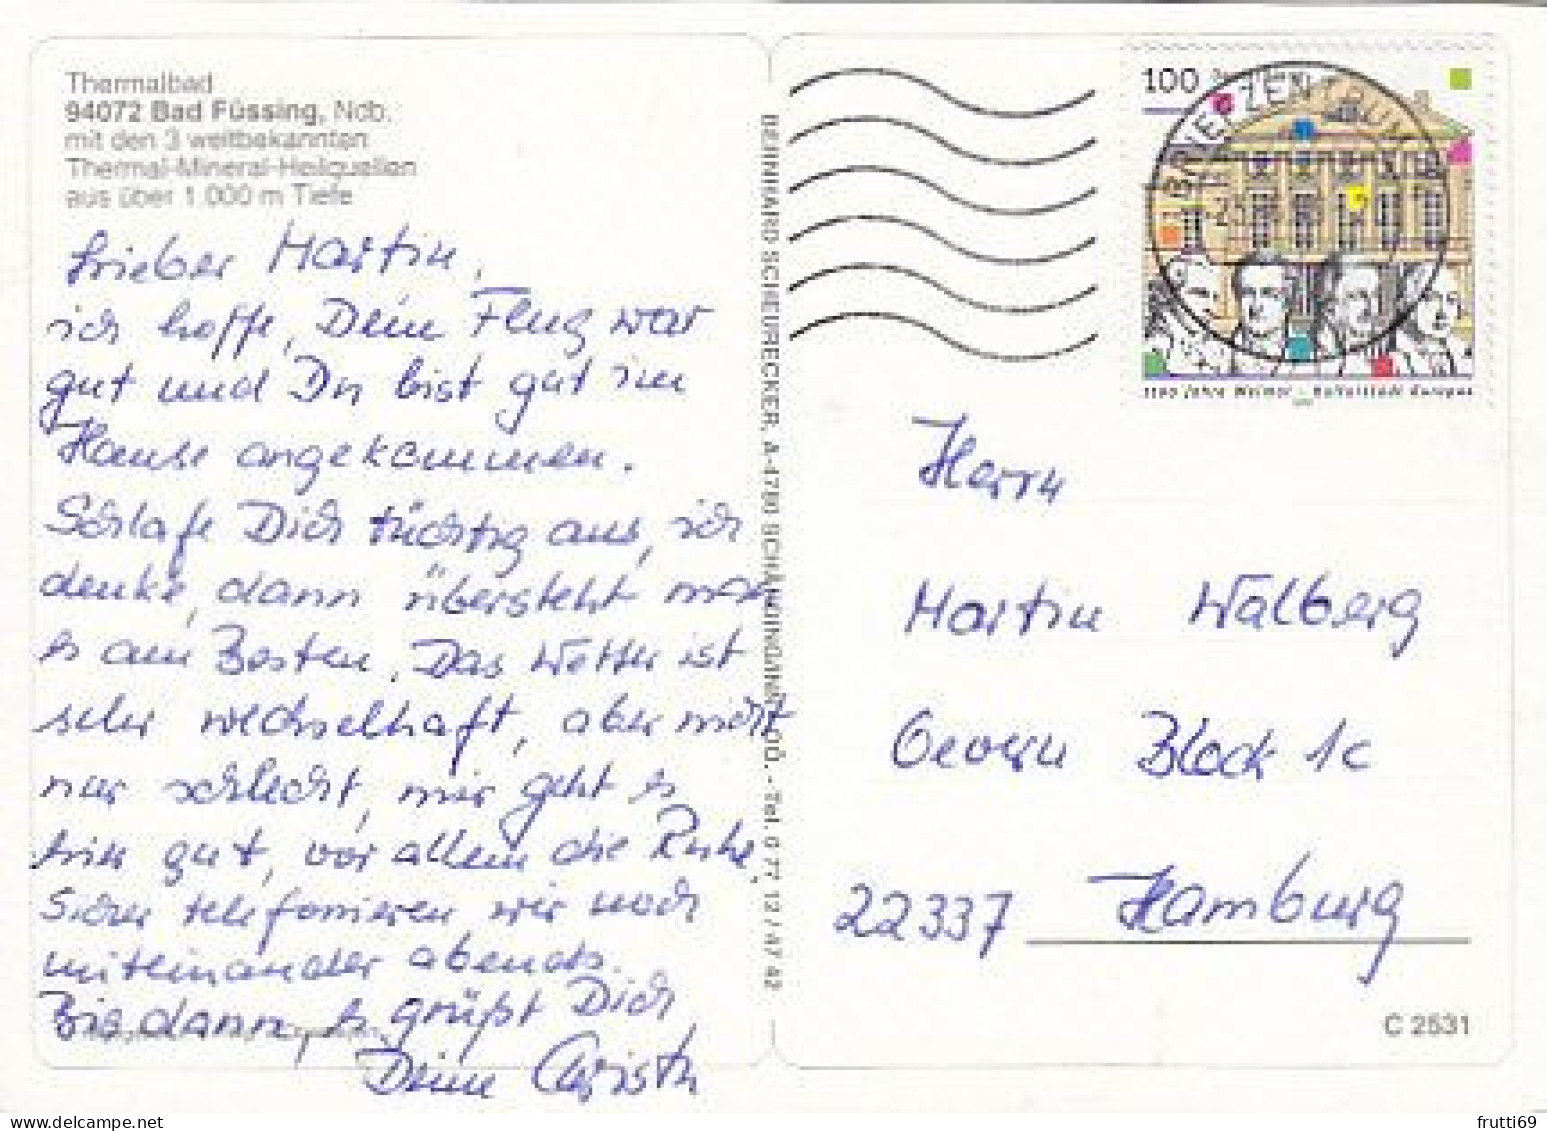 Thermalbad
94072 Bad Füssing, Ndb.
mit den 3 weltbekannten
Thermal-Mineral-Heilquellen
aus über 1.000 m Tiefe
Lieber Martin,
ich hoffe, Dein Flug war
gut und Du bist gut im
Hause angekommen.
Schlafe Dich tüchtig aus, ich
denke, dann übersteht man
es am Besten. Das Wetter ist
sehr wechselhaft, aber nicht
nur schlecht, mir geht es
hier gut, vor allem die Ruhe.
Sicher telefonieren wir noch
miteinander abends.
Bis dann, es grüßt Dich
Deine
BERNHARD SCHEURECKER, A-4780 SCHÄRDING/ - Tel. 0 77 12 / 47 42
100
BRIEFZENTRUM
1100 Jahre Weimar - Kulturstadt Europas
Herrn
Martin Walberg
Block 1c
22337 Hamburg
C 2531
frutti69